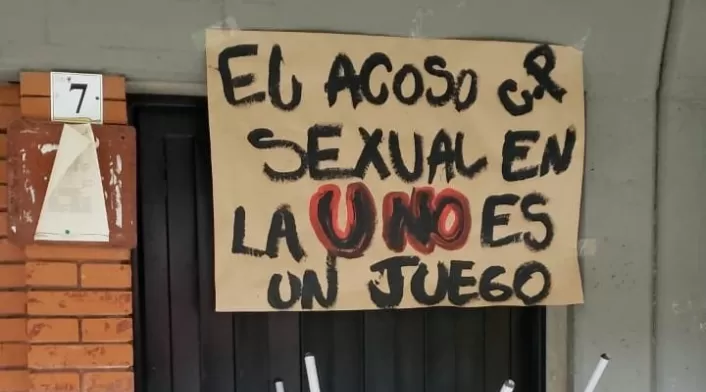 7
EL ACOSO
SEXUAL EN
LA UNO ES
UN JUEGO